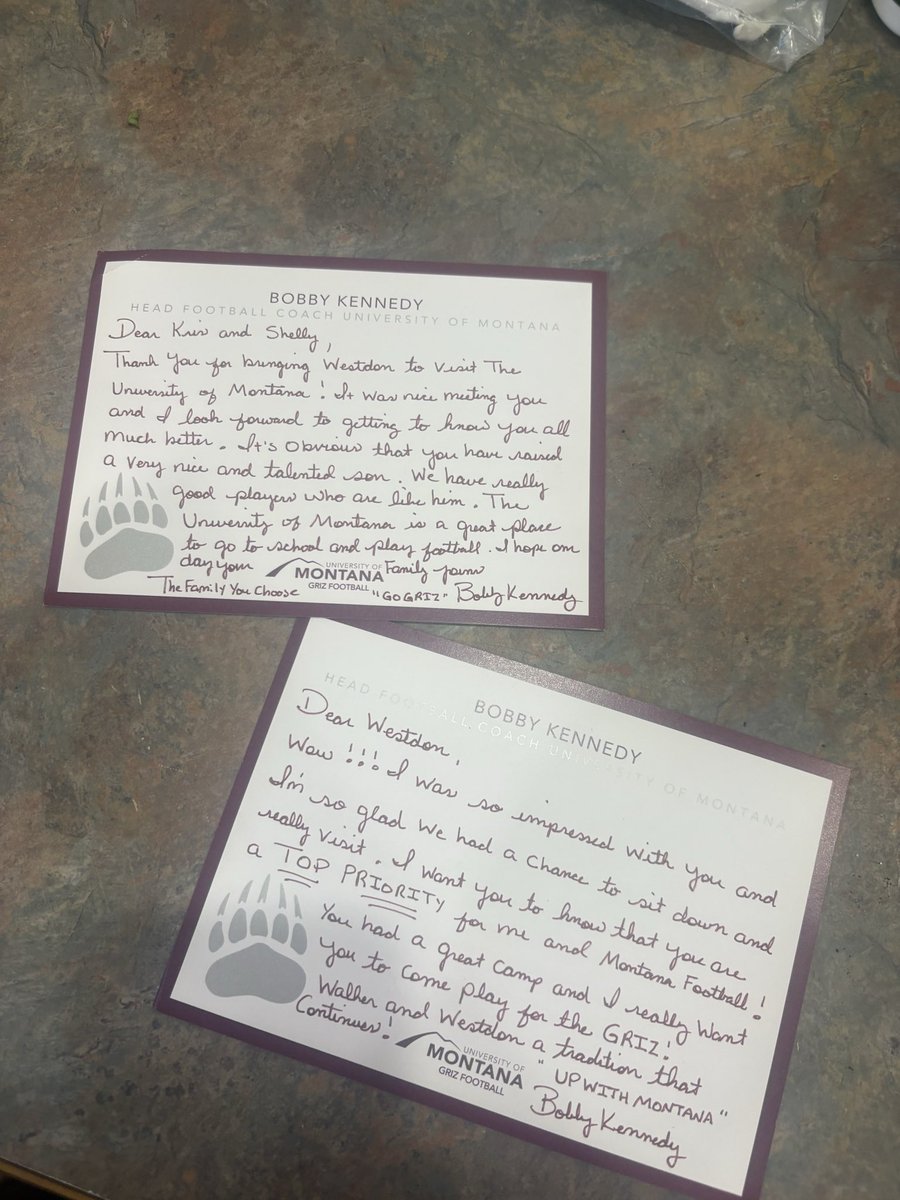 BOBBY KENNEDY
HEAD FOOTBALL COACH UNIVERSITY OF MONTANA
Dear Kris and Shelly,
Thank you for bringing Westdon to visit The
University of Montana! It was nice meeting you
and I look forward to getting to know you all
much better. It's obvious that you have raised
a very nice and talented son. We have really
good players who are like him. The
University of Montana is a great place
to go to school and play football. I hope one
day your Family joins
UNIVERSITY OF
MONTANA
GRIZ FOOTBALL
The Family You Choose "GO GRIZ" Bobby Kennedy
BOBBY KENNEDY
HEAD FOOTBALL COACH UNIVERSITY OF MONTANA
Dear Westdon,
Wow!!! I was so impressed with you and
I'm so glad we had a chance to sit down and
really visit. I want you to know that you are
a TOP PRIORITY for me and Montana Football!
You had a great camp and I really want
you to come play for the GRIZ!
Walker and Westdon a tradition that
Continues!
"UP WITH MONTANA"
UNIVERSITY OF
MONTANA
GRIZ FOOTBALL
Bobby Kennedy